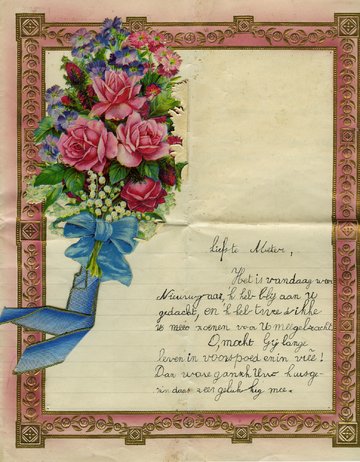 Liefste Meter,
Het is vandaag weer
Nieuwjaar, 'k heb blij aan U
gedacht, en 'k heb twee dikke
zoenen voor U meegebracht
O, mocht Gij lange
leven in voorspoed en in vree!
Dar ware gansch Uw huisge-
zin daar zeer gelukkig mee.